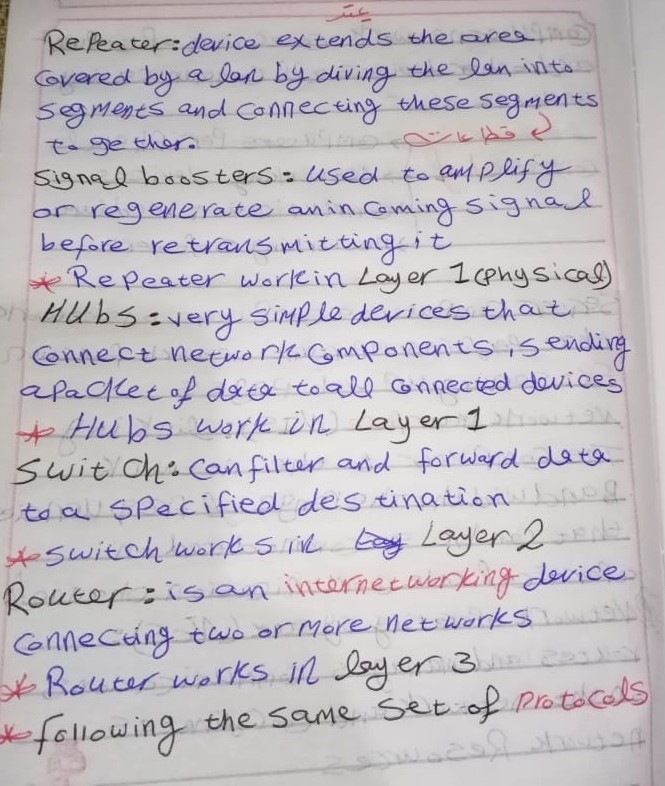 Repeater: device extends the area
Covered by a lan by diving the lan into
segments and connecting these segments
to ge ther.
Signal boosters: used to amplify
or regenerate an in coming signal
before retransmitting it
* Repeater work in Layer 1 (physical)
HUbs: very simple devices that
Connect network components, sending
a packet of data to all connected devices
* Hubs work in Layer 1
Switch: can filter and forward data
to a specified destination
* switch works in Layer 2
Router: is an internetworking device
connecting two or more networks
* Router works in layer 3
* following the same set of protocols